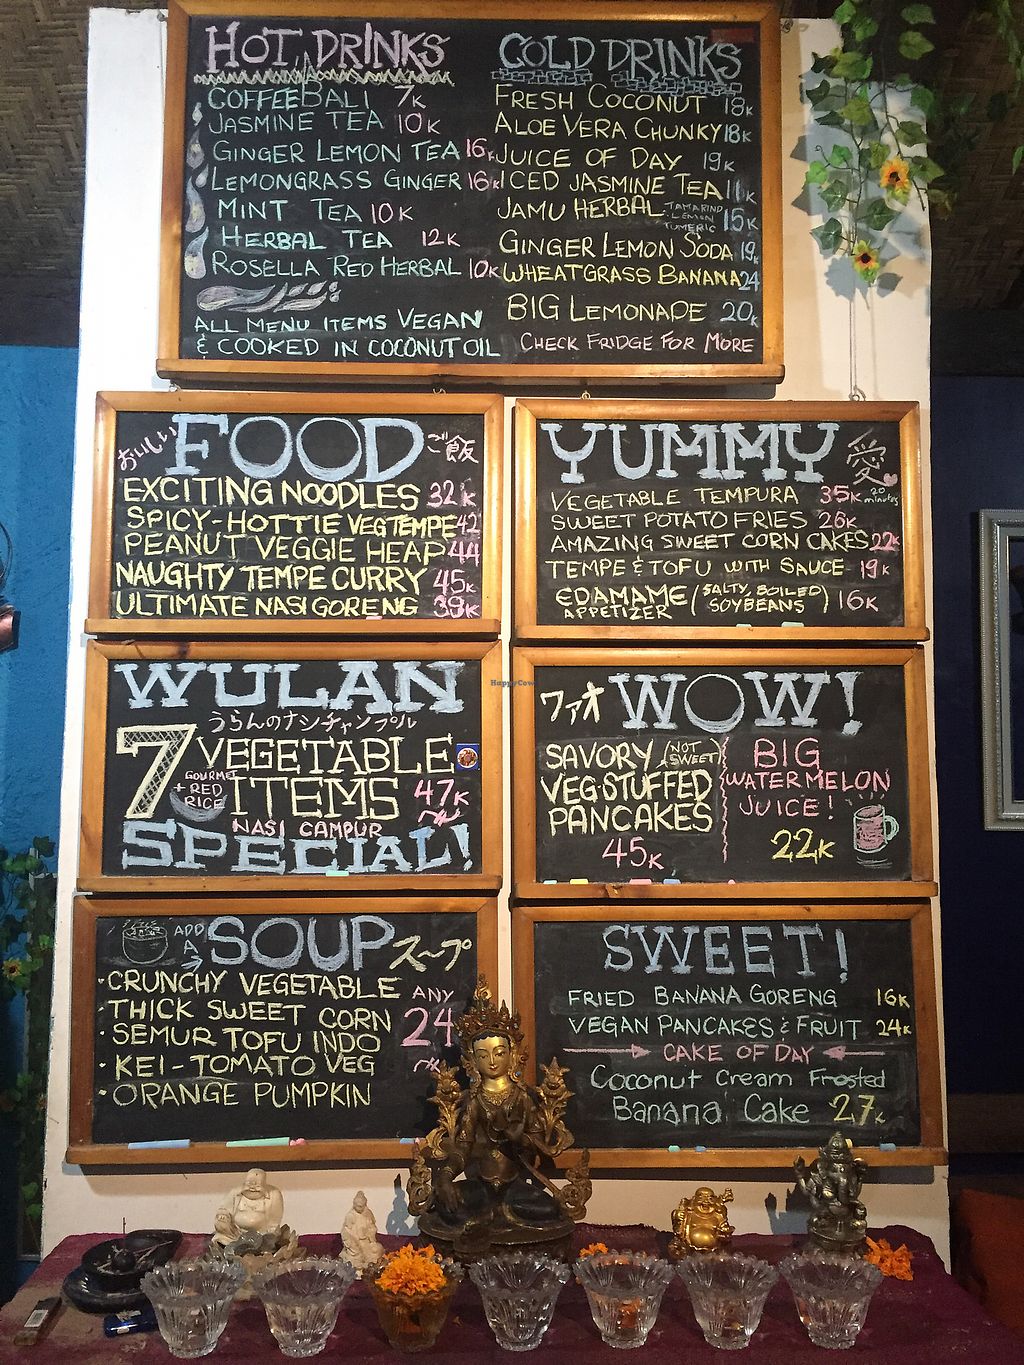 HOT DRINKS
COFFEE BALI 7K
JASMINE TEA 10K
GINGER LEMON TEA 16K
LEMONGRASS GINGER 16K
MINT TEA 10K
HERBAL TEA 12K
ROSELLA RED HERBAL 10K
ALL MENU ITEMS VEGAN
& COOKED IN COCONUT OIL
COLD DRINKS
FRESH COCONUT 18K
ALOE VERA CHUNKY 18K
JUICE OF DAY 19K
ICED JASMINE TEA 11K
JAMU HERBAL TAMARIND LEMON TUMERIC 15K
GINGER LEMON SODA 19K
WHEATGRASS BANANA 24
BIG LEMONADE 20K
CHECK FRIDGE FOR MORE
おいしい FOOD ご飯
EXCITING NOODLES 32K
SPICY-HOTTIE VEG TEMPE 42
PEANUT VEGGIE HEAP 44
NAUGHTY TEMPE CURRY 45K
ULTIMATE NASI GORENG 39K
YUMMY 愛
VEGETABLE TEMPURA 35K 20 minutes
SWEET POTATO FRIES 26K
AMAZING SWEET CORN CAKES 22K
TEMPE & TOFU WITH SAUCE 19K
EDAMAME (SALTY, BOILED
APPETIZER SOYBEANS) 16K
WULAN
うらんのナシチャンプル
7 VEGETABLE
GOURMET + RED RICE ITEMS 47K
NASI CAMPUR
SPECIAL!
ワァオ WOW!
SAVORY (NOT SWEET)
VEG-STUFFED
PANCAKES
45K
BIG
WATERMELON
JUICE!
22K
HappyCow
ADD A SOUP スープ
• CRUNCHY VEGETABLE
• THICK SWEET CORN
• SEMUR TOFU INDO
• KEI-TOMATO VEG
• ORANGE PUMPKIN
ANY
24
SWEET!
FRIED BANANA GORENG 16K
VEGAN PANCAKES & FRUIT 24K
CAKE OF DAY
Coconut Cream Frosted
Banana Cake 27K